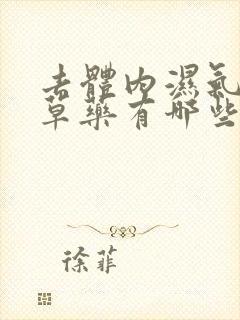 去體內濕氣
草藥有哪些
徐菲